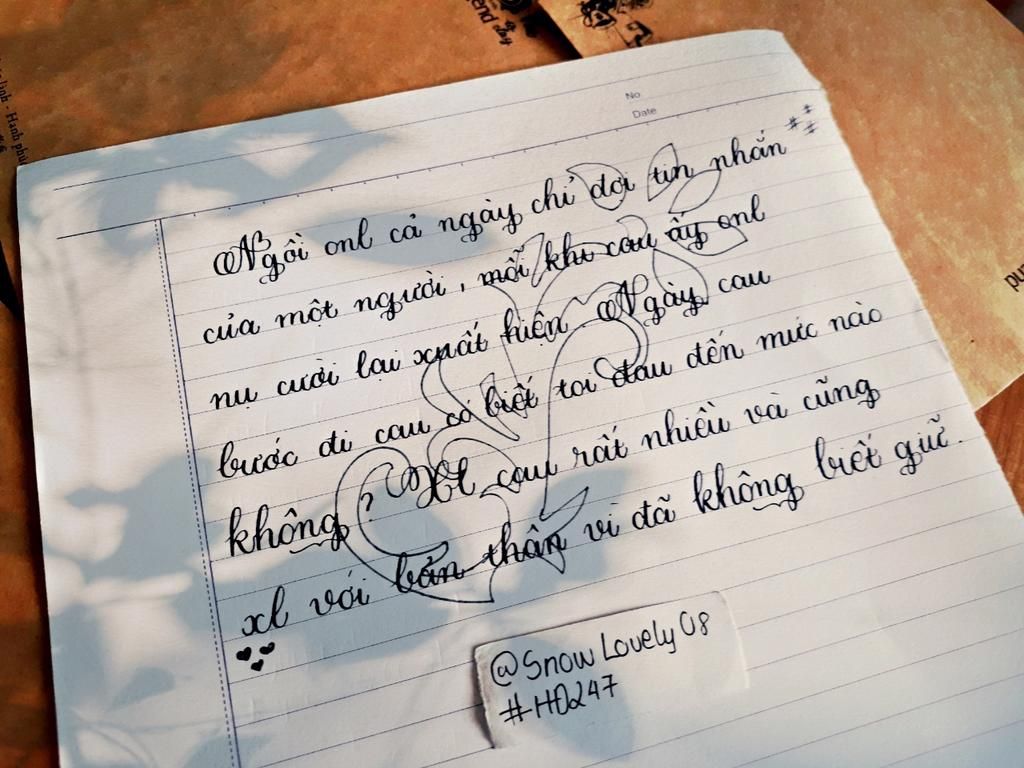 No
Date
Ngồi onl cả ngày chỉ đợi tin nhắn
của một người, mỗi khi cậu ấy onl
nụ cười lại xuất hiện. Ngày cậu
bước đi cậu có biết tôi đau đến mức nào
không? Xl cậu rất nhiều và cũng
xl với bản thân vì đã không biết giữ.
@SnowLovely08
#HD247